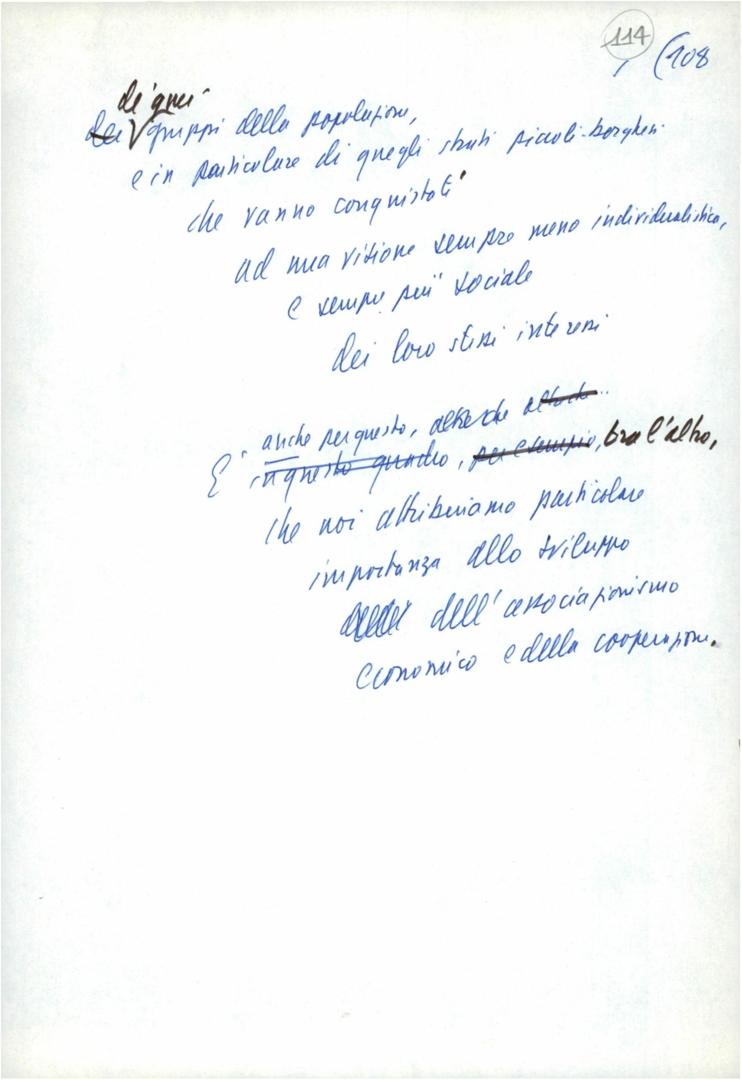 114
(108
di quei
dei gruppi della popolazione,
e in particolare di quegli strati piccoli-borghesi
che vanno conquistati
ad una visione sempre meno individualistica,
e sempre più sociale
dei loro stessi interessi
anche per questo, oltre che
E' in questo quadro, per esempio, tra l'altro,
che noi attribuiamo particolare
importanza allo sviluppo
dell'associazionismo
economico e della cooperazione.